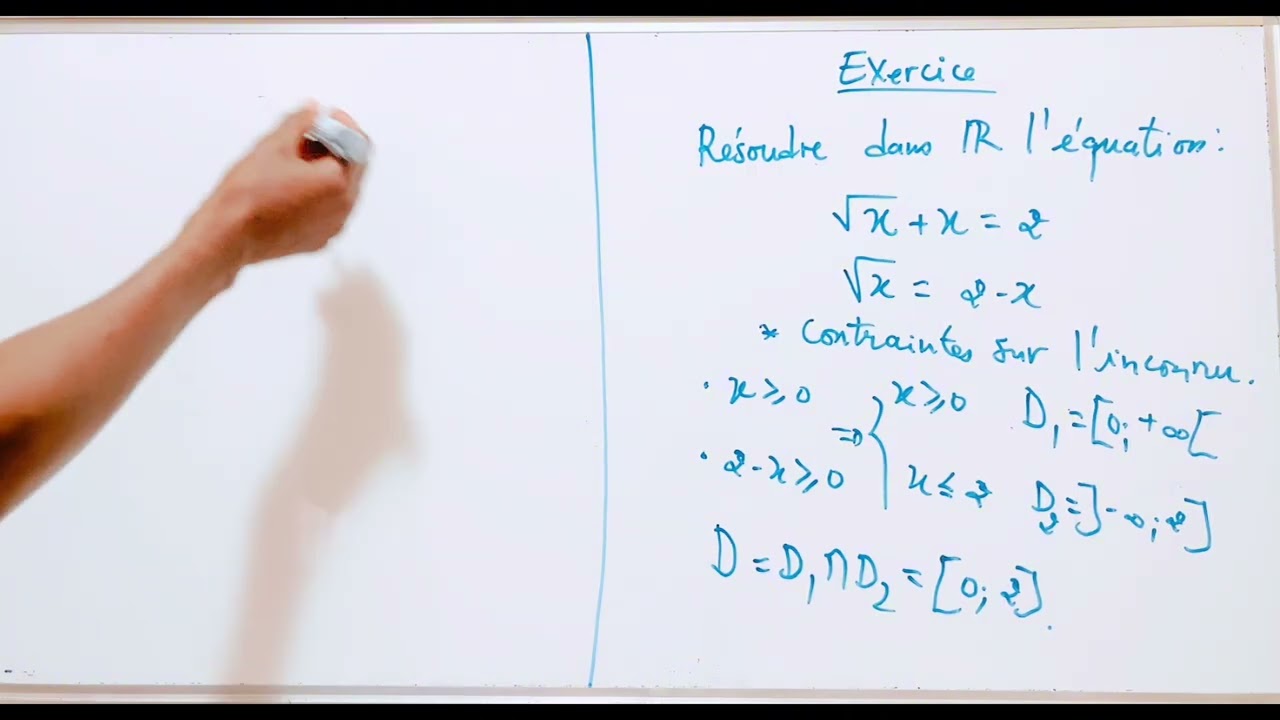 Exercice
Résoudre dans ℝ l'équation :
√x + x = 2
√x = 2 - x
* Contraintes sur l'inconnu.
· x ≥ 0 ⇒ { x ≥ 0 D₁ = [0; +∞[
· 2 - x ≥ 0 x ≤ 2 D₂ = ]-∞; 2]
D = D₁ ∩ D₂ = [0; 2].